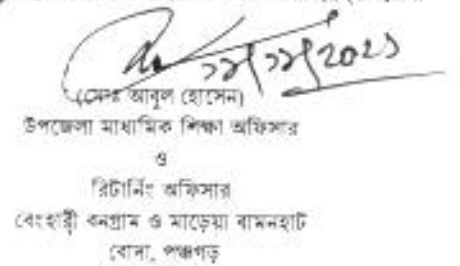 ১১/১১/২০২১
(মোঃ আবুল হোসেন)
উপজেলা মাধ্যমিক শিক্ষা অফিসার
ও
রিটার্নিং অফিসার
বেংহারী বনগ্রাম ও মাড়েয়া বামনহাট
বোদা, পঞ্চগড়